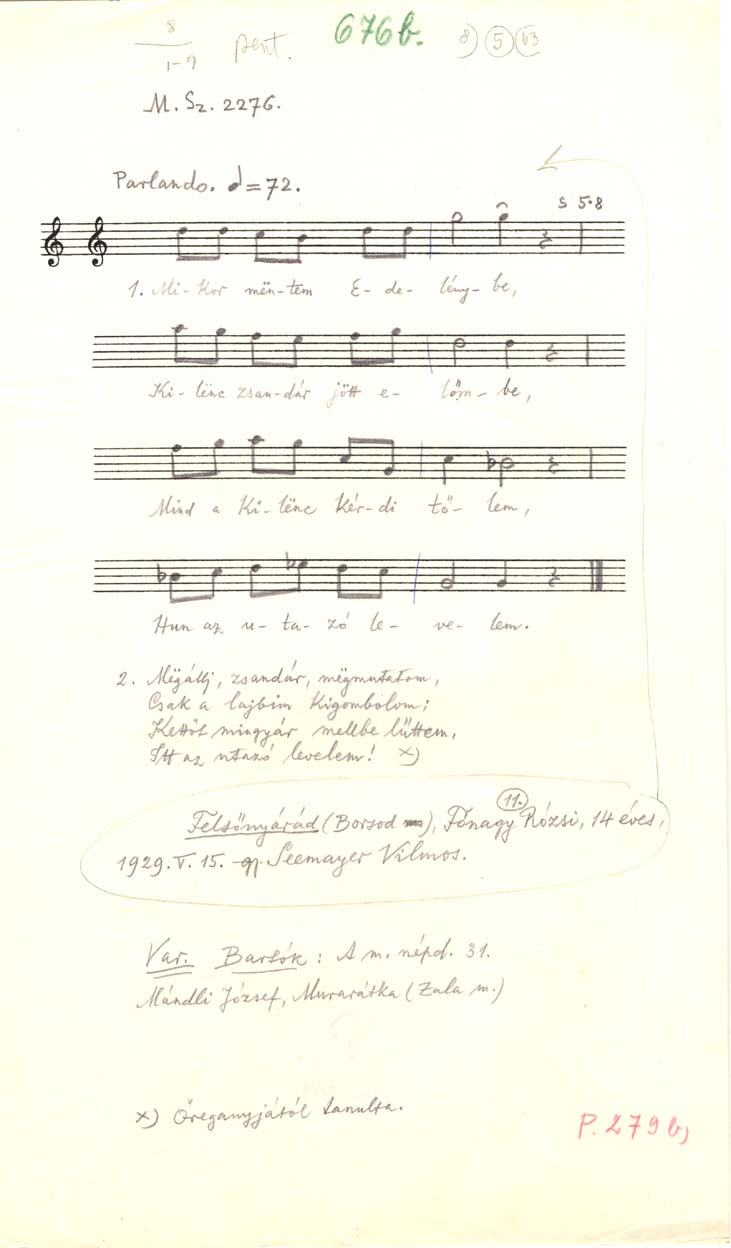 8
1-9 pent. 676b. 8) 5 b3
M. Sz. 2276.
Parlando. ♩=72.
s 5·8
1. Mi-kor mën-tem E-de-lény-be,
Ki-lënc zsan-dár jött e-lőm-be,
Mind a Ki-lënc kér-di tő-lem,
Hun az u-ta-zó le-ve-lem.
2. Mëgállj, zsandár, mëgmutatom,
Csak a lajbim kigombolom;
Kettőt mingyár mellbe lűttem,
Itt az utazó levelem! x)
11.
Felsőnyárád (Borsod), Fónagy Rózsi, 14 éves,
1929. V. 15. Seemayer Vilmos.
Var. Bartók: A m. népd. 31.
Mándli József, Murarátka (Zala m.)
x) Öreganyjától tanulta.
P. 279 b)